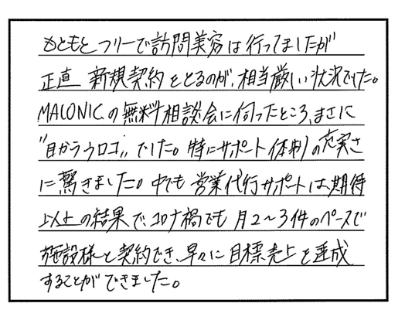 もともとフリーで訪問美容は行ってましたが
正直 新規契約をとるのが、相当厳しい状況でした。
MALONICの無料相談会に伺ったところ、まさに
"目からウロコ"でした。特にサポート体制の充実さ
に驚きました。中でも営業代行サポートは期待
以上の結果で、コロナ禍でも月2〜3件のペースで
施設様と契約でき、早々に目標売上を達成
することができました。